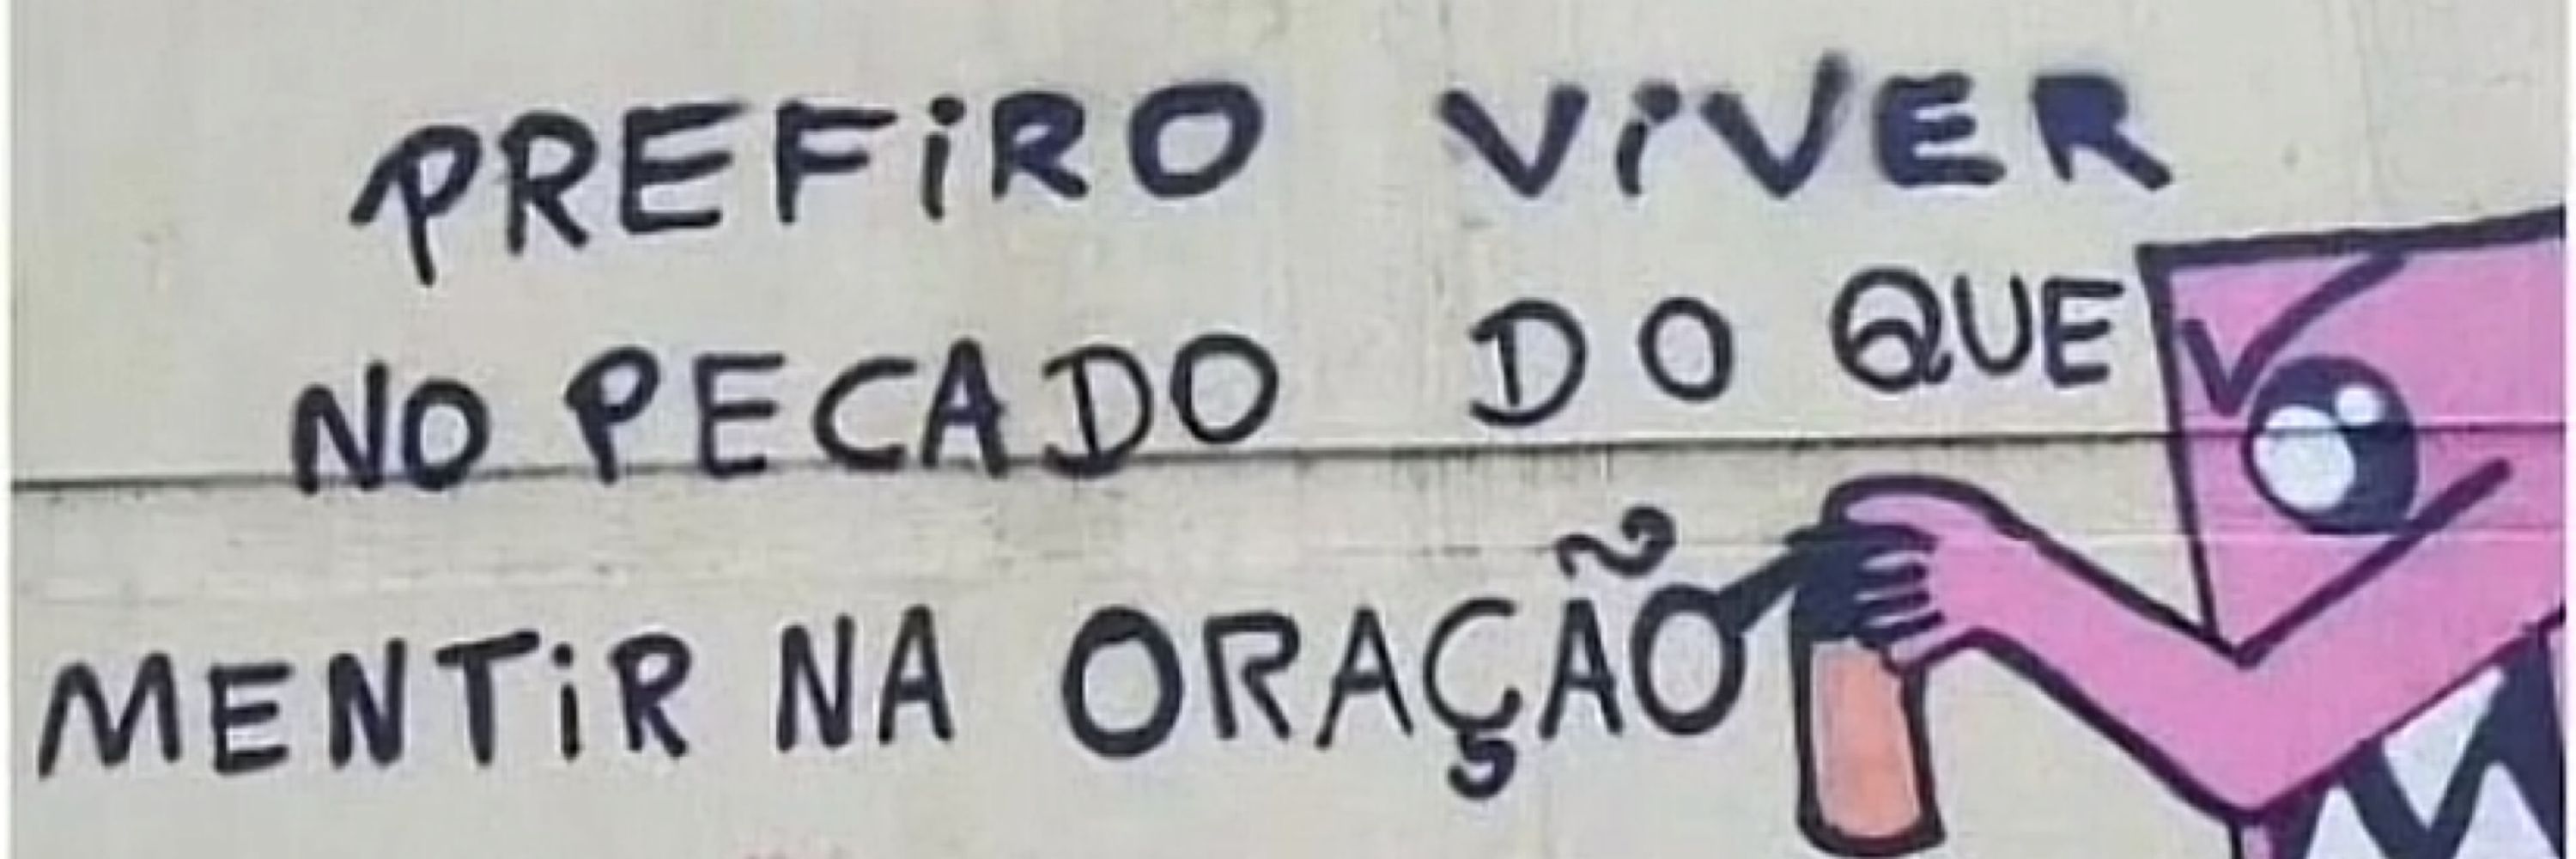 PREFiRO ViVER
NO PECADO DO QUE
MENTiR NA ORAÇÃO